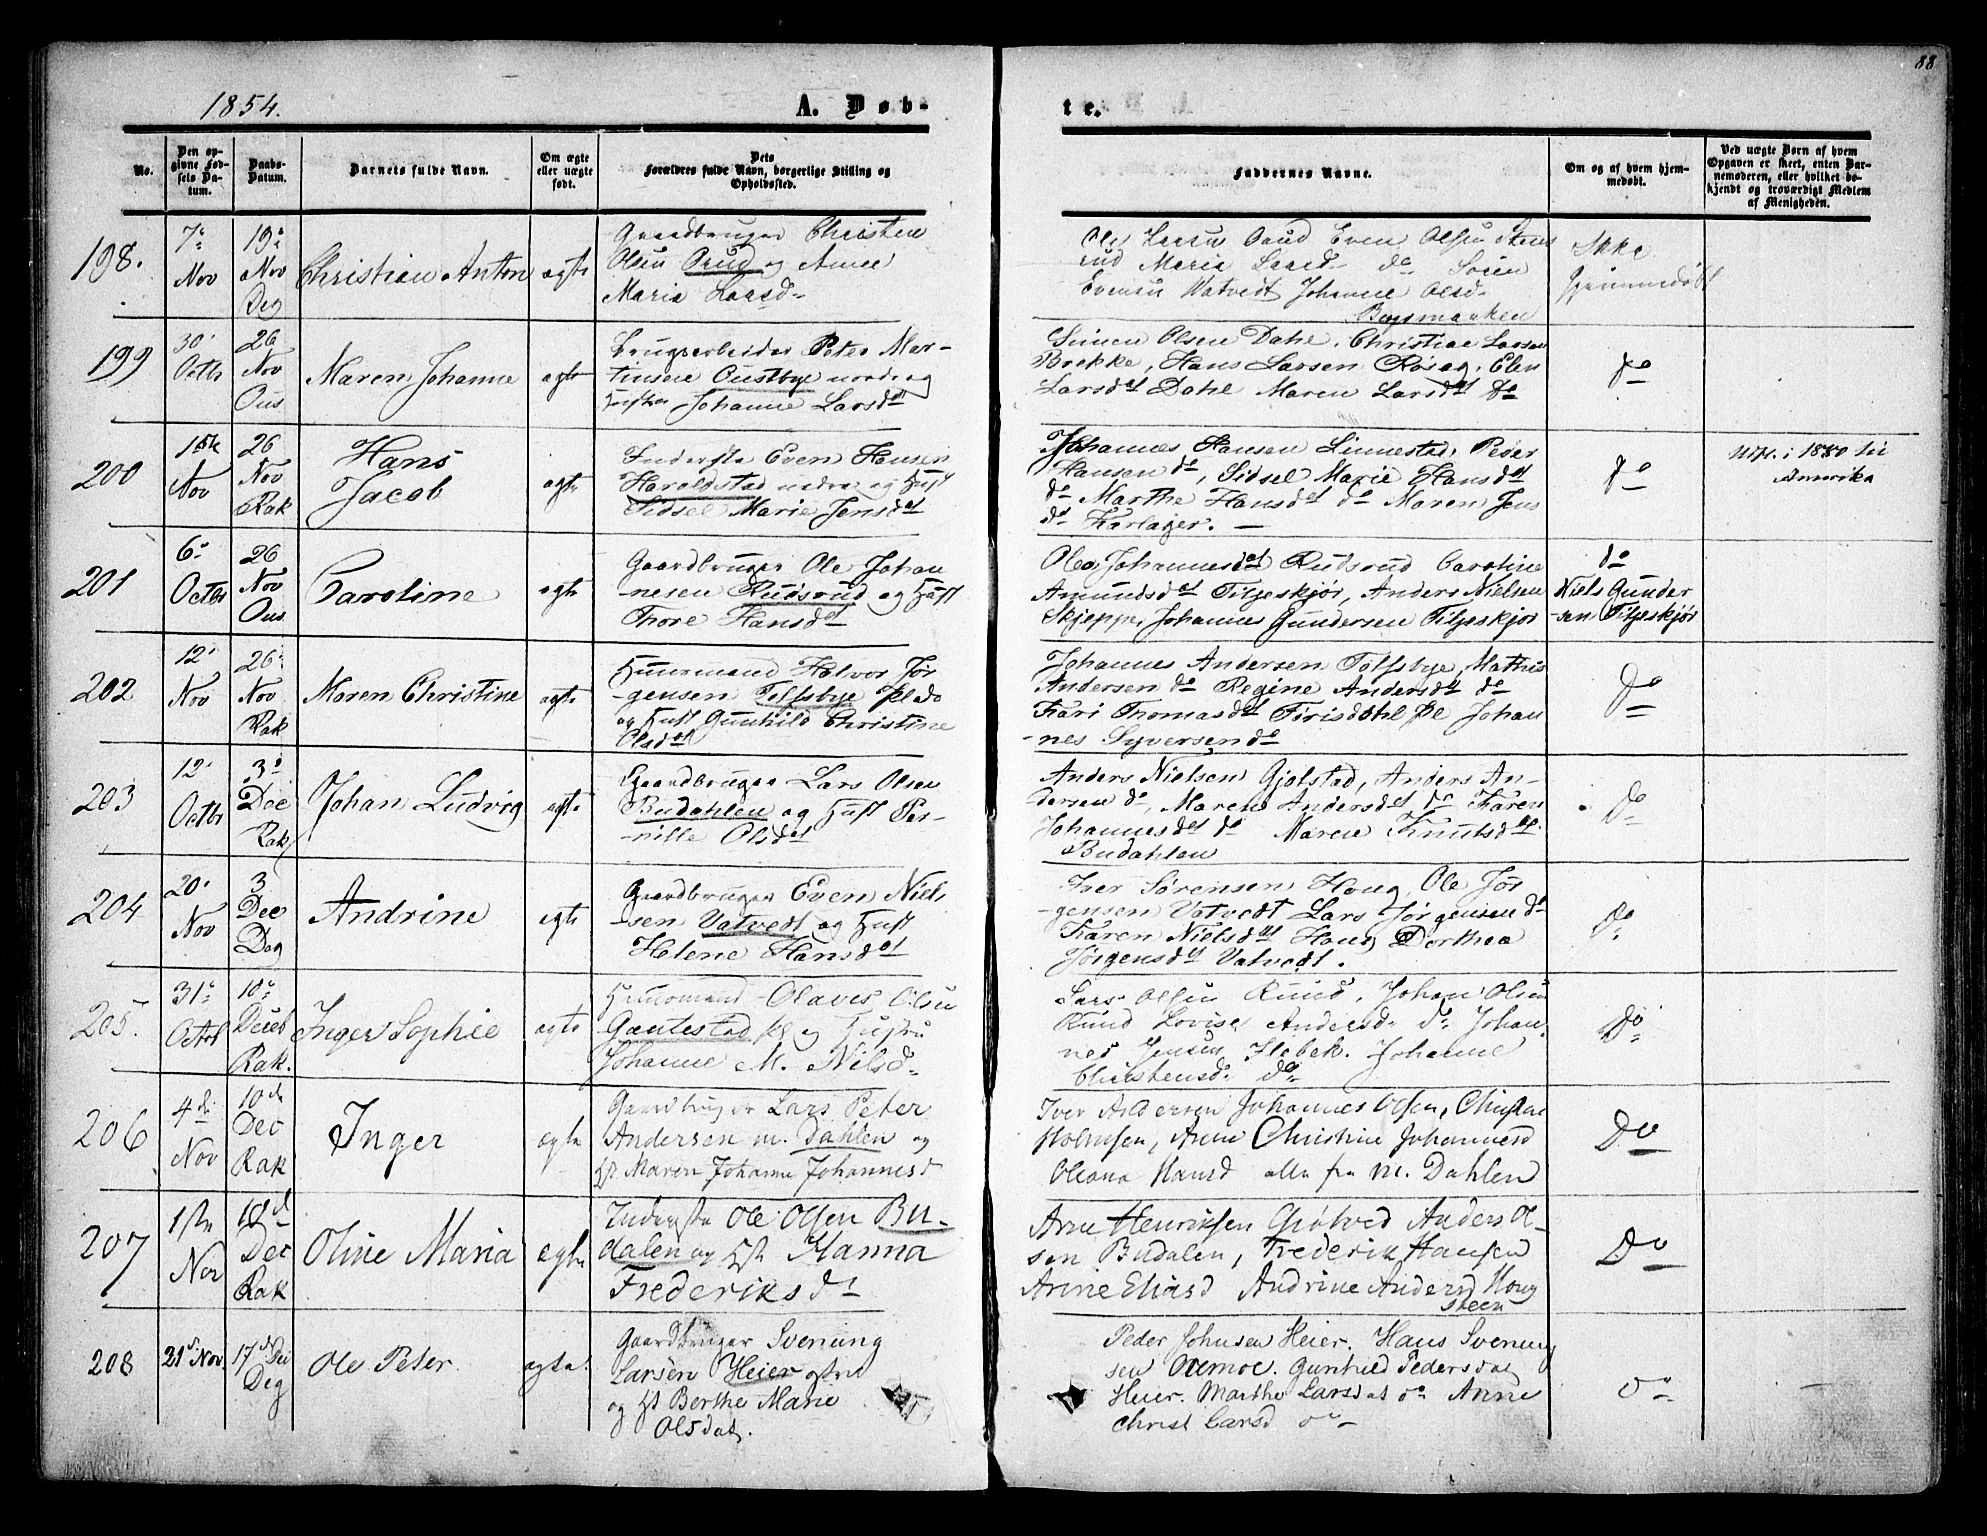 88
1854.
A. Døb-
te.
No.
Den op-
givne Fød-
sels Da-
tum.
Daabs-
Datum.
Barnets fulde Navn.
Om ægte
eller uægte
født.
Dets
Forældres fulde Navn, borgerlige Stilling og
Opholdssted.
Faddernes Navne.
Om og af hvem hjem-
medøbt.
Ved uægte Børn af hvem
Opgaven er skeet, enten Bar-
nemoderen, eller hvilket be-
kjendt og troværdigt Medlem
af Menigheden.
198.
7de
Nov
19de
Nov
Deg
Christian Anton
ægte
Gaardbruger Christen
Olsen Prud og Anne
Maria Larsd.
Ole Larsen Even Olsen
rud Maria Larsd do Søren
Evensen Vatvedt Johanne Olsd
Bagsmarken
Ikke
hjemmedøbt
199
30
Octbr
26
Nov
Ous
Maren Johanne
ægte
Brugsarbeider Peter Mar-
tinsen Oustbye nordre og
Hustru Johanne Larsdat
Simen Olsen Dahl, Christian Larsen
Brekke, Hans Larsen Rosag, Elen
Larsdat Dahl Maren Larsdat Do
do
200
15de
Nov
26
Nov
Rak
Hans
Jacob
ægte
Inderste Even Hansen
Haroldstad nedre og Hust
Sidsel Marie Jensdat
Johannes Hansen Linnestad, Peder
Hansen do, Sidsel Marie Hansdat
do Marthe Hansdat do Maren Jens
dt Karlager.
do
i 1880 til
Amerika
201
6
Octbr
26
Nov
Ous
Caroline
ægte
Gaardbruger Ole Johan
nesen Rudsrud og Hust
Thore Hansdat
Olea Johannesdat Rudsrud Caroline
Amundsdat Tiljeskjør, Anders Nielsen
Skjeppe, Johannes Gundersen Tiljeskjør
do
Niels Gunder
-sen Tiljeskjør
202
12
Nov
26
Nov
Rak
Maren Christine
ægte
Huusmand Halvor Jør
-gensen Tolfsbye Plds
og Hust Gunhild Christine
Olsdat
Johannes Andersen Tolfsbye, Mathis
Andersen do Regine Andersdat do
Kari Thomasdat Tirisdahl Pl Johan
-nes Syversen do
do
203
12
Octbr
3
Dec
Rak
Johan Ludvig
ægte
Gaardbruger Lars Olsen
Budahlen og Hust Per-
nille Olsdat
Anders Nielsen Gjølstad, Anders An-
dersen do, Maren Andersdat do Karen
Johannesdat do Maren Knutsdat
Budahlen
do
204
20
Nov
3
Dec
Deg
Andrine
ægte
Gaardbruger Even Niel-
-sen Vatvedt og Hust
Helene Hansdat
Iver Sørensen Houg, Ole Jør
-gensen Vatvedt Lars Jørgensen do
Karen Nielsdat Houg Dorthea
Jørgensdat Vatvedt.
do
205.
31
Octob
10
Deceb
Rak.
Inger Sophie
ægte
Huusmand Olaves Olsen
Gautestad pl og Hustru
Johanne M. Nilsd.
Lars Olsen Rund, Johan Olsen
Rund Lovise Andersd do Johan-
nes Jensen Habek. Johanne
Christensd. do
Do
206
4de
Nov
10de
Dec
Rak
Inger
ægte
Gaardbruger Lars Peter
Andersen m. Dahlen og
Hst Maren Johanne Johannesd
Iver Andersen Johannes Olsen, Christian
Anne Christine Johannesd
Oleana Hansd alle fra m. Dahlen
Do
207
1ste
Nov
10d
Dec
Rak
Oline Maria
ægte
Inderste Ole Olsen Bu-
dalen og Hst Manna
Frederiksd
Arne Henriksen Grøtved Anders Ol-
sen Budalen, Frederik Hansen
Anne Eliasd Andrine Andersd Houg
steen
Do
208
21d Nov.
17d Dec
Deg
Ole Peter.
ægte.
Gaardbruger Svenung
Larsen Heier østre
og Hst Berthe Marie
Olsdat.
Peder Johnsen Heier. Hans Svenung
sen Ormoe. Gunhild Pedersdat
Heier. Marthe Larsdat do Anne
Christ Larsd do
do